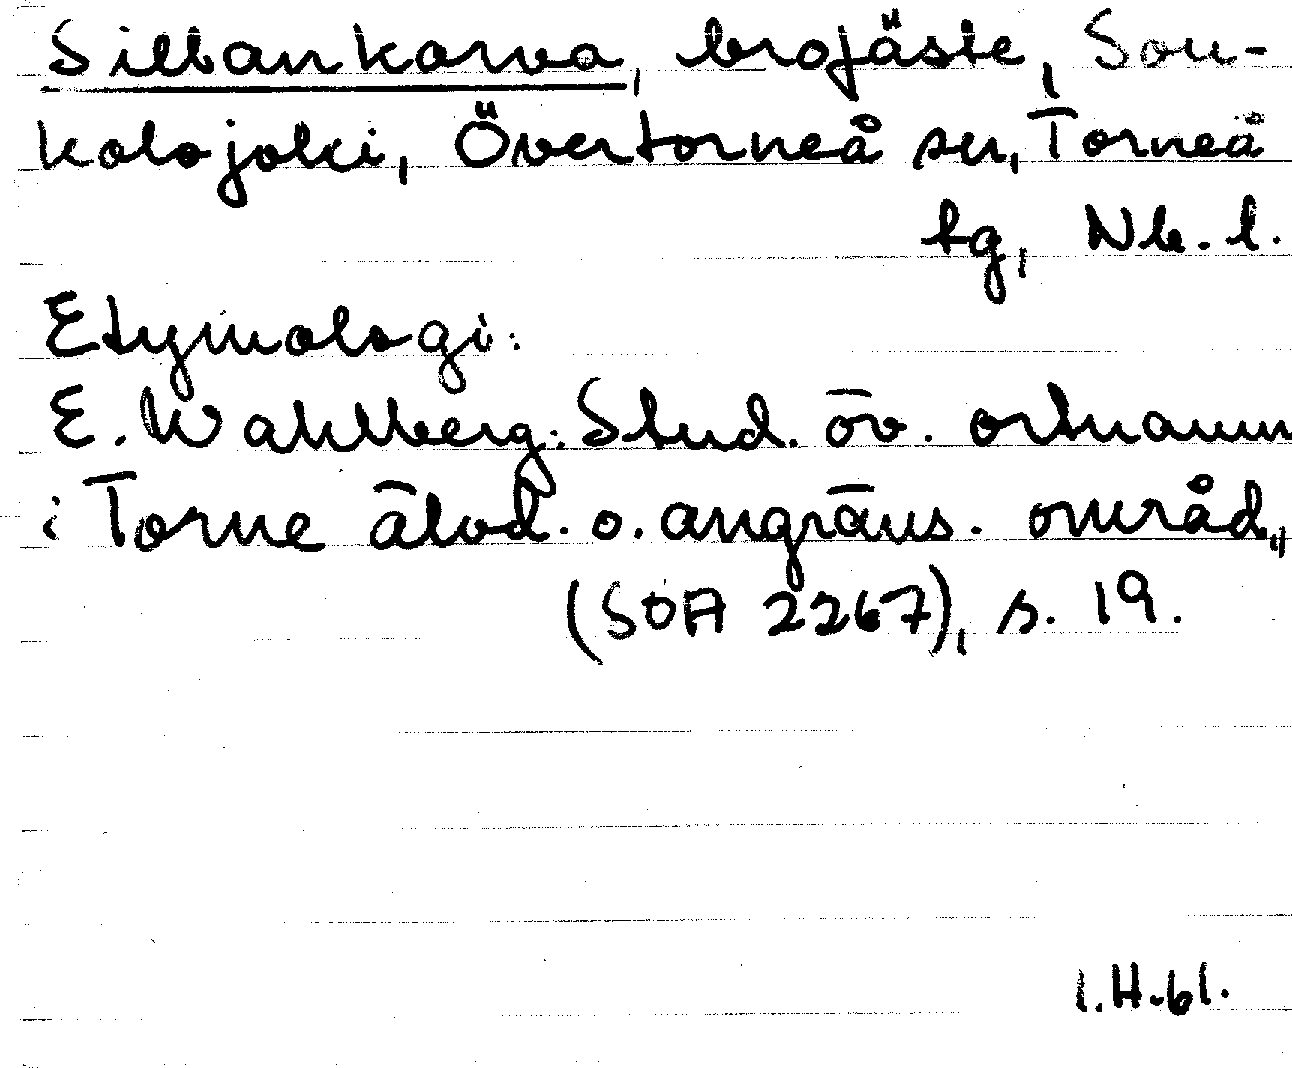 Sillankorva, brofäste, Sou-
kolojoki, Övertorneå sn, Torneå
tg, Nb. l.
Etymologi:
E. Wahlberg: Stud. öv. ortnamn
i Torne älvd. o. angräns. områd.,
(SOA 2267), s. 19.
I.H.61.